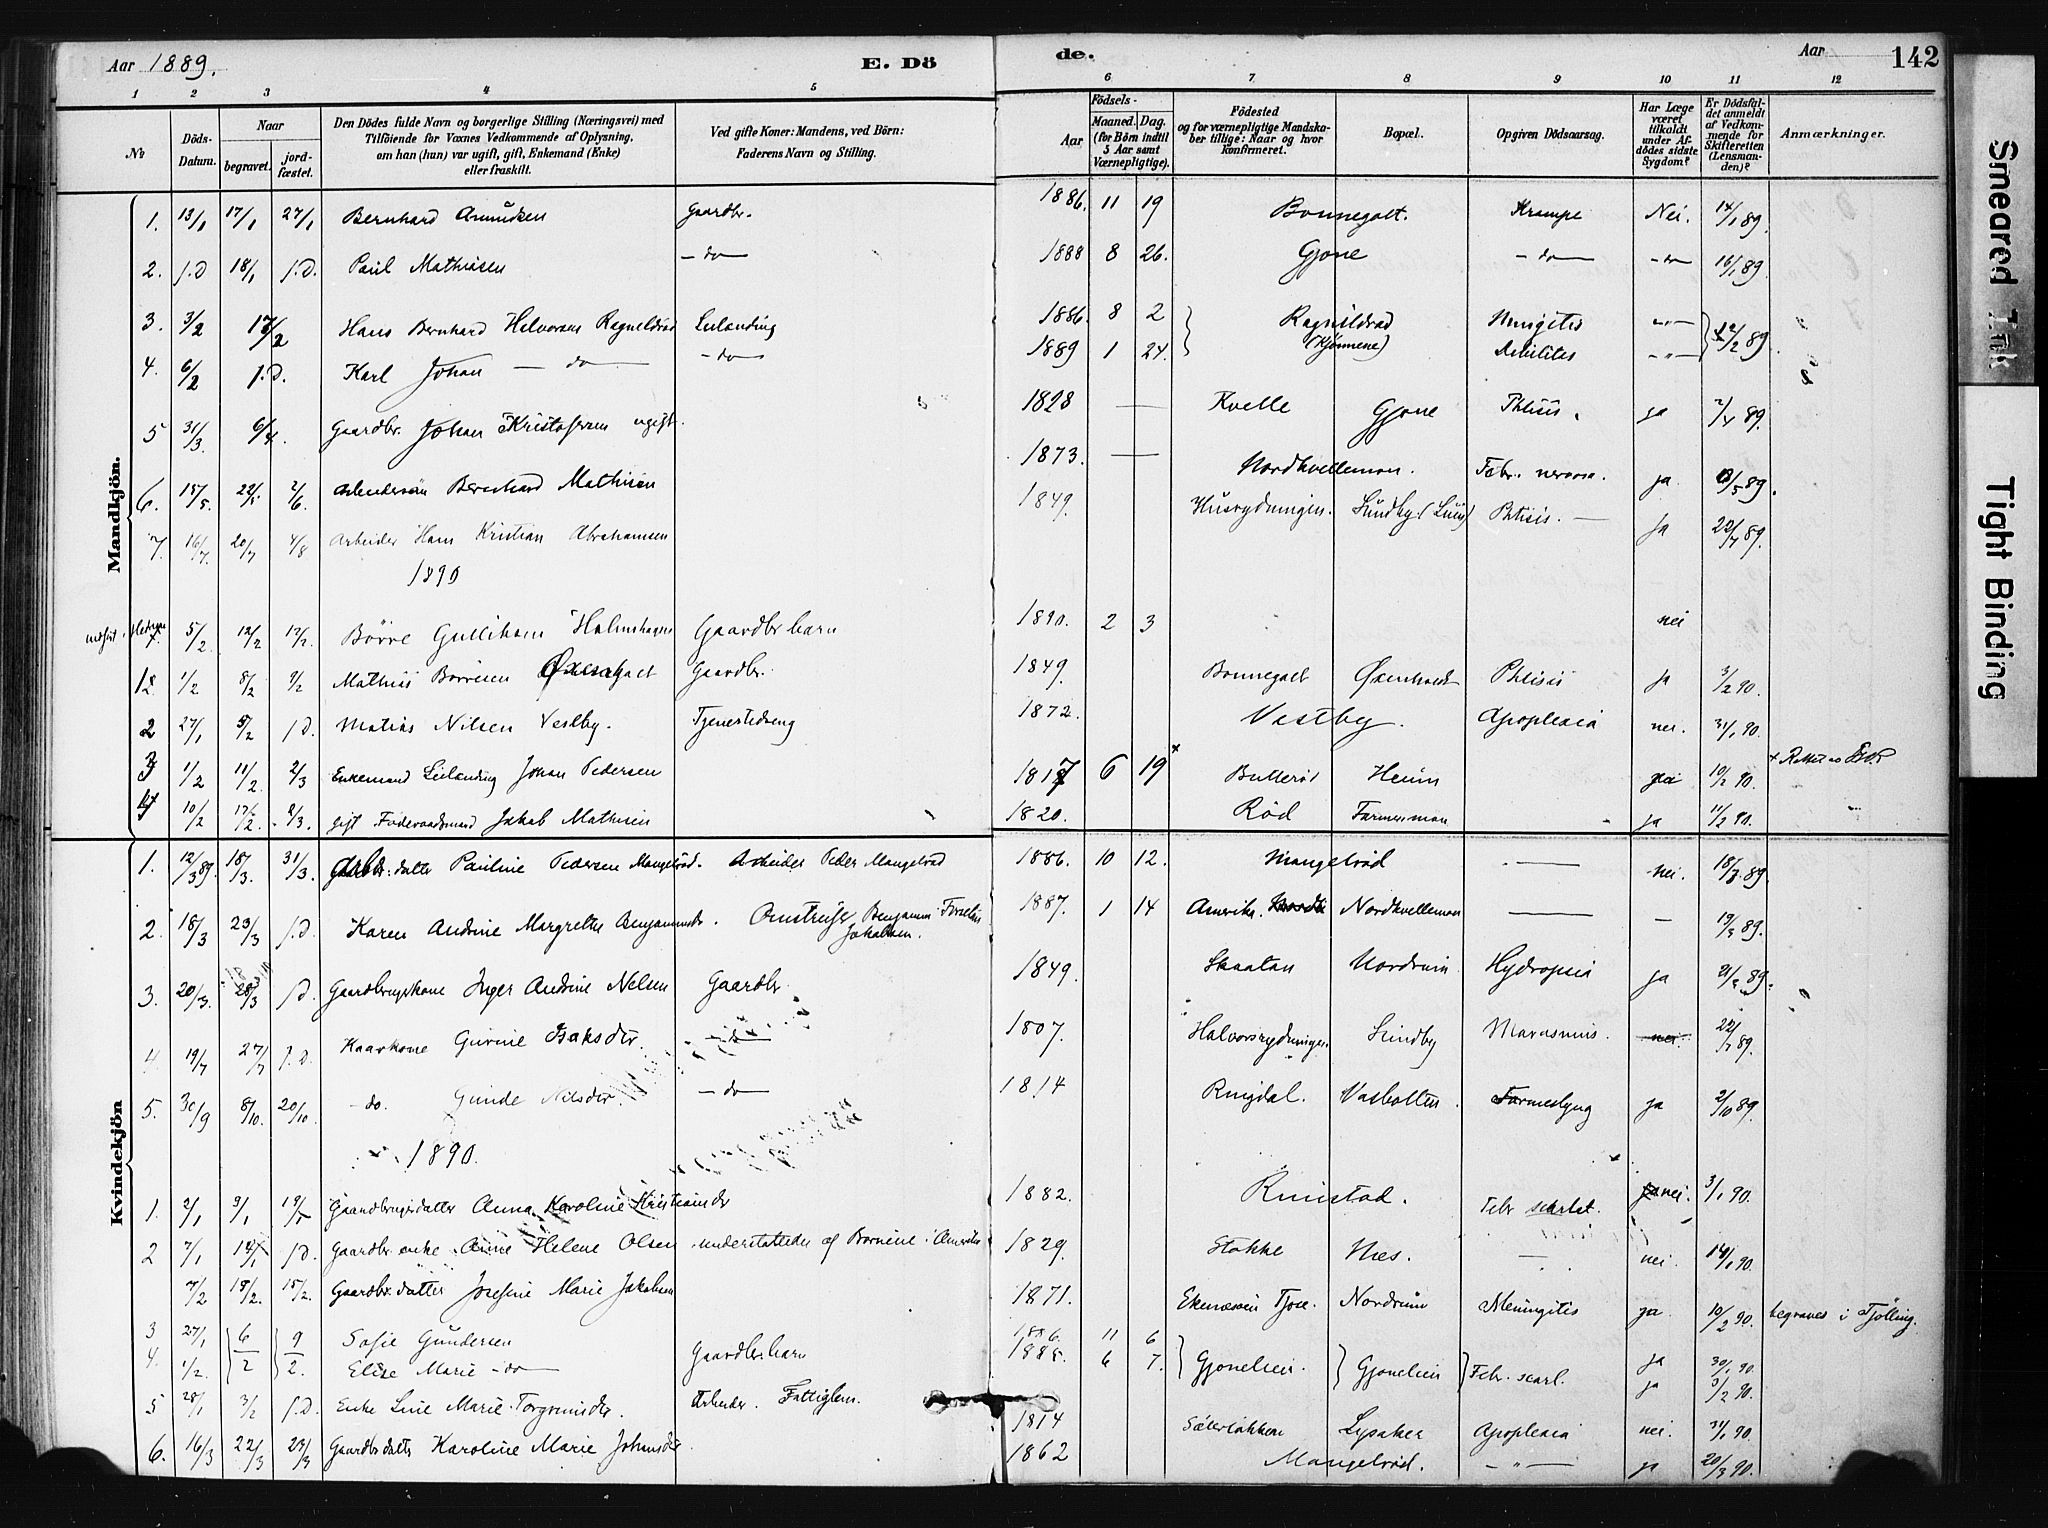 Aar 1889. E. Dö de. Aar 142
1 2 3 4 5 6 7. 8 9 10 11 12
No
Döds-Datum.
Naar
begravet.
jord-fæstet.
Den Dödes fulde Navn og borgerlige Stilling (Næringsvei) med
Tilföiende for Voxnes Vedkommende af Oplysning,
om han (hun) var ugift, gift, Enkemand (Enke)
eller fraskilt.
Ved gifte Koner: Mandens, ved Börn:
Faderens Navn og Stilling.
Födsels-
Aar
Maaned. Dag.
(for Børn indtil
5 Aar samt
Værnepligtige).
Födested
og for værnepligtige Mandska-
ber tillige: Naar og hvor
Konfirmeret.
Bopæl.
Opgiven Dödsaarsag.
Har Læge
været
tilkaldt
under Af-
dödes sidste
Sygdom?
Er Dödsfal-
det anmeldt
af Vedkom-
mende for
Skifteretten
(Lensman-
den)?
Anmærkninger.
Mandkjön.
1. 13/1 17/1 27/1 Bernhard Amundsen Gaardbr. 1886. 11 19 Bonnegolt. Krampe Nei. 14/1 89.
2. s.D 18/1 s.D. Paul Mathisen - do - 1888 8 26. Gjone - do - - do - 16/1 89.
3. 3/2 17/2 Hans Bernhard Halvorsen Leilænding 1886. 8 2 Ragnildrød -"- 12/2 89.
4. 6/2 s.D. Karl Johan - do - - do - 1889 1 24. (Kjønnene) Debilites -"-
5 31/3. 6/4. Gaardbr. Johan Kristofersen ugift. 1828 — Kvelle Gjone Phtisis. ja 2/4 89.
6. 15/5. 22/5. 2/6 Bernhard Mathisen 1873. — Nordkvellemoen. Febr. nervosa. ja 18/5 89.
7. 16/7. 20/7 4/8 Arbeider Hans Kristian Abrahamsen 1849. Husrydningen. Sundby Phtisis. — Ja 22/7 89.
1890
5/2. 12/2 12/2. Børre Gulliksen Holmshagen Gaardbr barn 1890. 2 3 nei
1. 1/2 8/2 9/2 Mathis Børresen Gaardbr. 1849. Bonnegolt Øxenholt Phtisis ja 3/2 90.
2 27/1 5/2 s.D. Matias Nilsen Vestby. Tjenestedreng 1872. Vestby. Apoplexia nei. 31/1 90.
3 1/2 11/2 2/3 Enkemand Leilænding Johan Pedersen 1817 6 19 x Bullerød Heum 10/2 90.
4 10/2 17/2. 2/3. gift Føderaadsmand Jakob Mathisen 1820. Rød Farmenmoen ja 11/2 90.
Kvindekjön
1. 12/3 89. 18/3. 31/3. datter Pauline Pedersen Mangelrød. Arbeider Peder Mangelrød 1886. 10 12. Mangelrød — nei. 18/3 89.
2. 18/3 23/3 s.D. Karen Andrine Margrethe Benjaminsdr. Benjamin Jakobsen. 1887. 1 14 Amerika. Nordkvellemoen — — 19/3 89.
3. 20/3. 28/3 s.D. Gaardbrugerkone Inger Andrine Nelsen Gaardbr. 1849. Skaatan Nordrum Hydropsia ja 21/3 89.
4 19/7 27/7 s.D. Kaarkone Gurine Isaksdtr. - do - 1807. Halvorsrydningen. Sundby Marasmus. nei. 22/7 89.
5. 30/9 8/10. 20/10. - do. Gunde Nilsdtr. - do - 1814 Ringdal. Vasbotten. Farmeslyng ja 2/10 89.
1890.
1. 2/1 9/1 19/1 Gaardbrugerdatter Anna Karoline Kristiansdr 1882. Rimstad. Febr scarlat. nei. 3/1 90.
2 7/1 14/1 s.D. Gaardbr enke Anne Helene Olsen understøttedes af Børnene i Amerika 1829. Stokke Næs. — nei. 14/1 90.
7/2 15/2. 15/2. Gaardbr. datter Josefine Marie Jakobsen 1871. Ekenæsveien Tjose. Nordrum Meningitis ja. 10/2 90. begraves i Tjølling.
3 27/1 6/2 9/2. Sofie Gundersen Gaardbr. barn 1886. 11 6 Gjonelien. Gjonelien Febr. scarl. ja 30/1 90.
4. 1/2. Elise Marie - do - 1885. 6 7. ja 3/2 90.
5 28/1 3/2 s.D. Enke Line Marie Torgrimsdr. Arbeider. Fattiglem. 1814 Sæterløkken Lysaker Apoplexia nei. 31/1 90.
6. 16/3 22/3 23/3 Gaardbr datter Karoline Marie Johansdr. 1862 Mangelrød. -"- ja 20/3 90.
Smeared Ink
Tight Binding